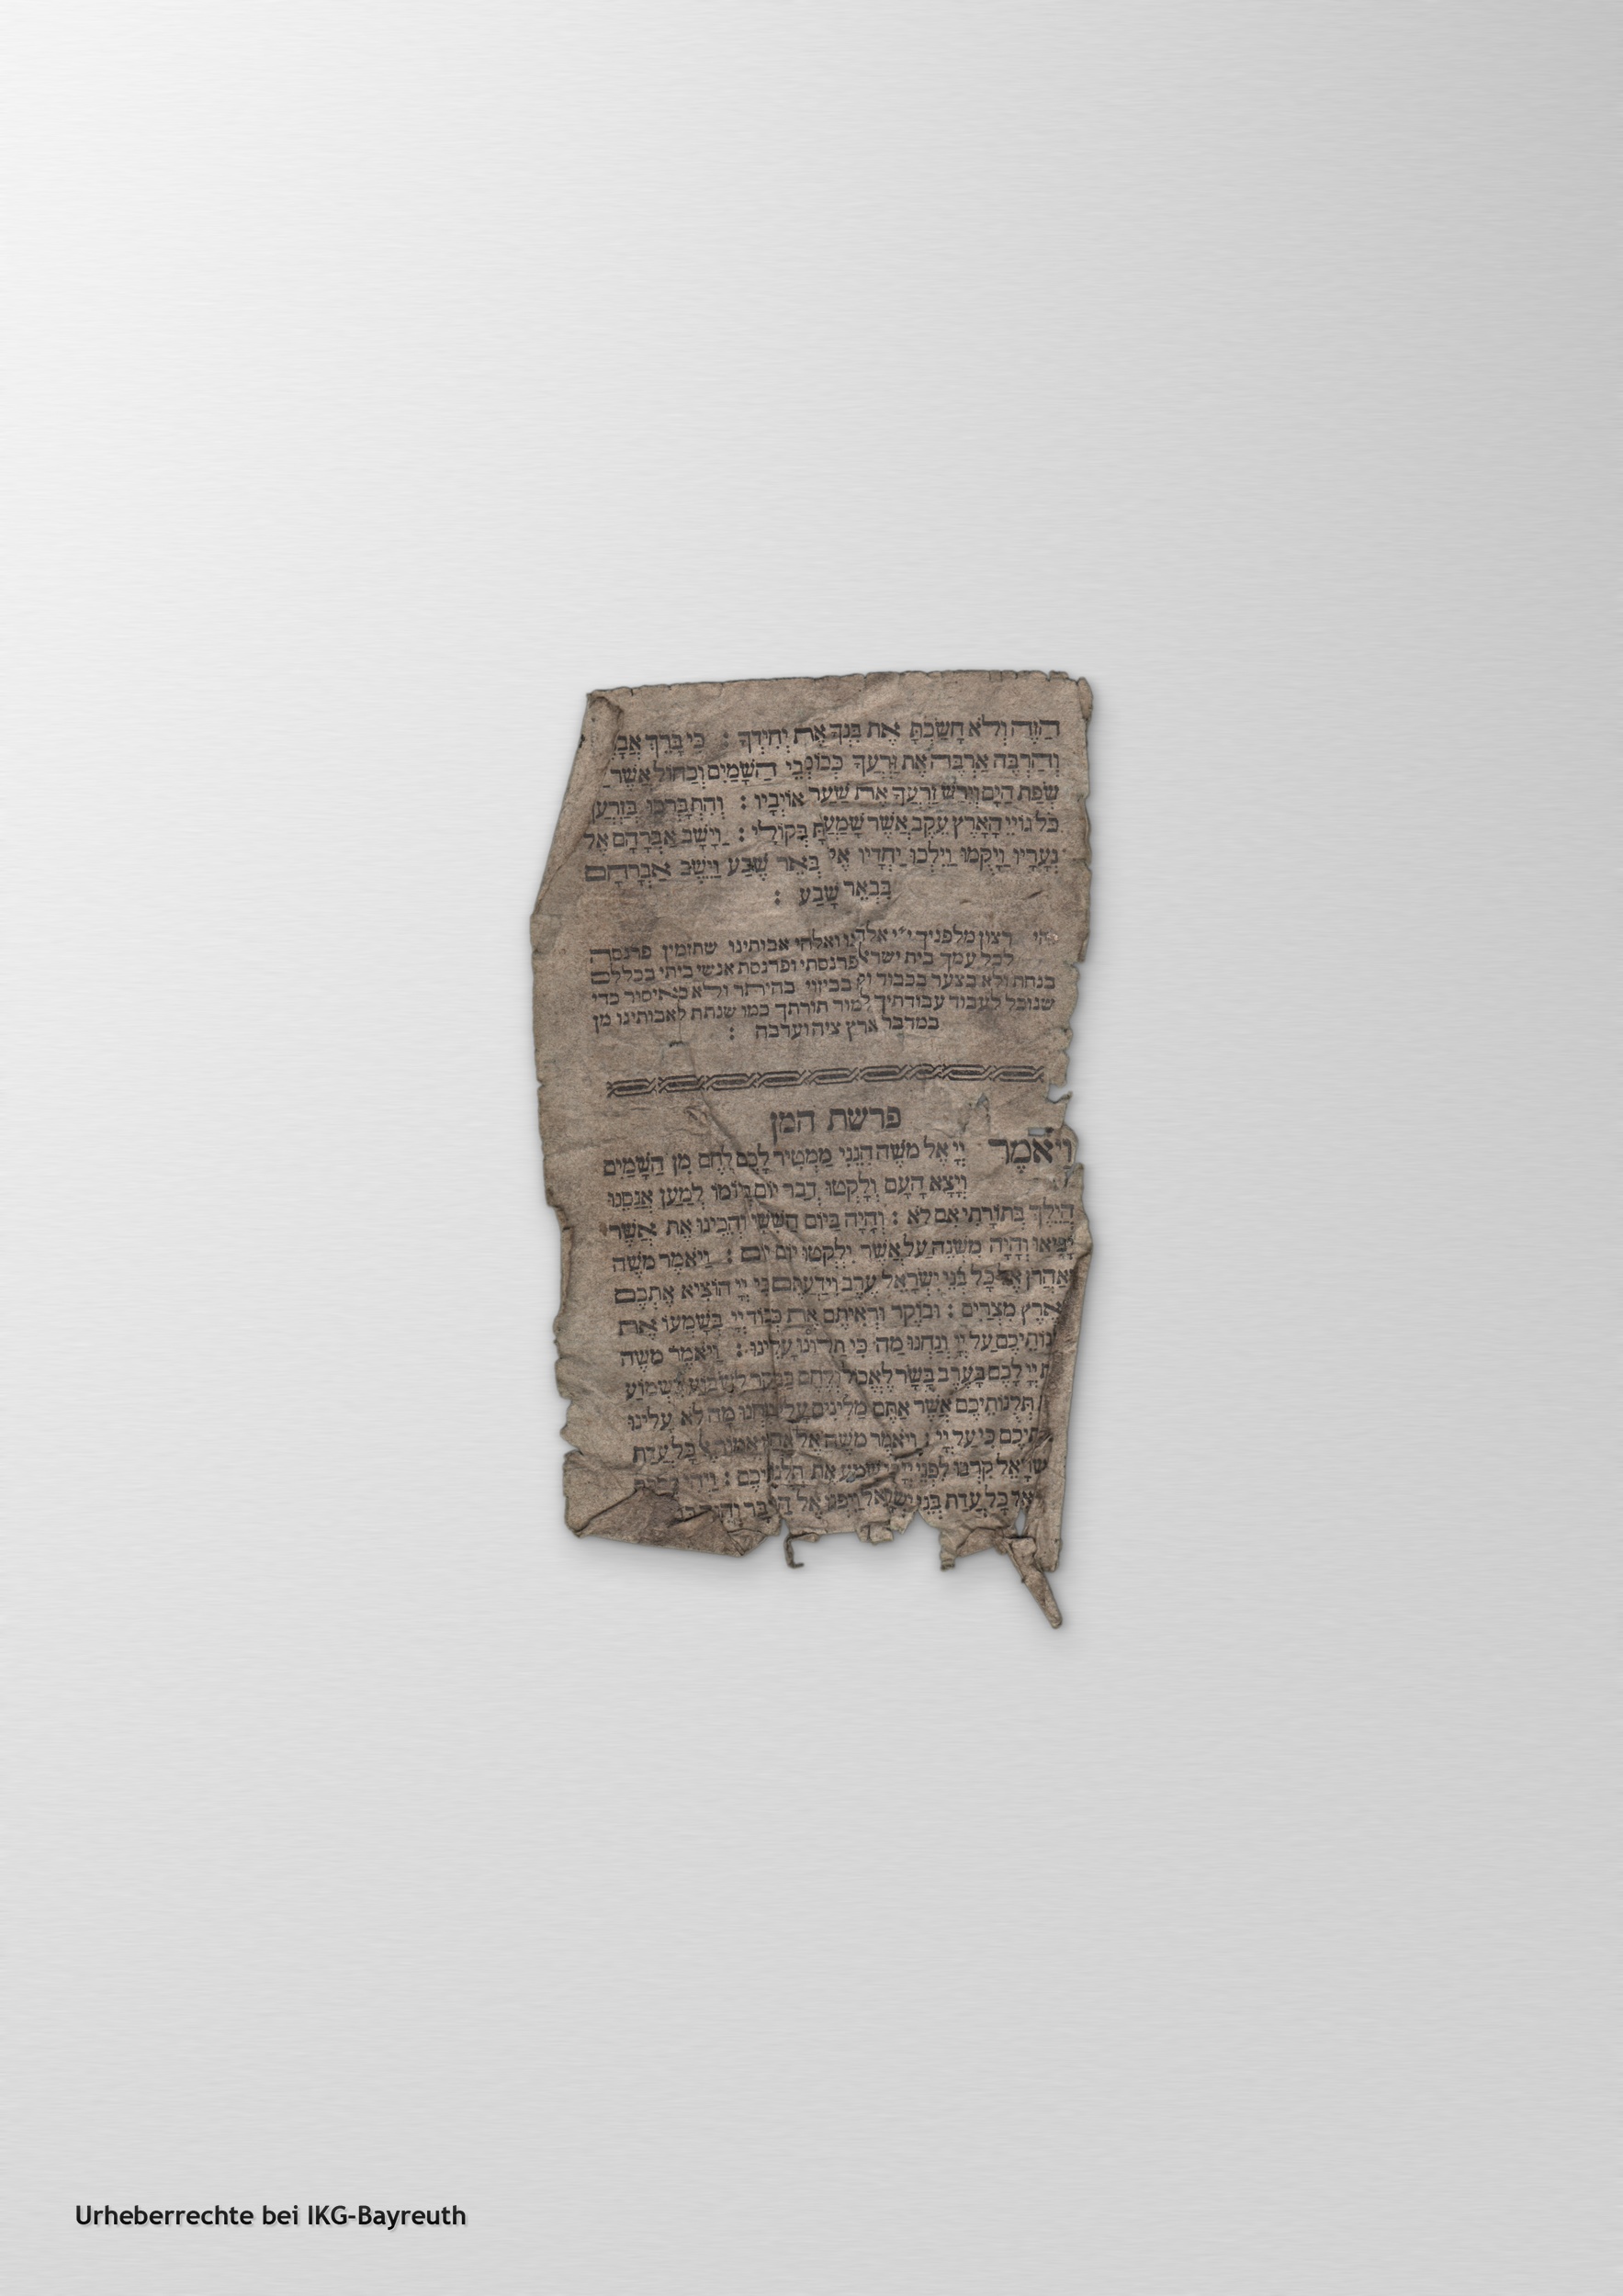 הַזֶּה וְלֹא חָשַׂכְתָּ אֶת בִּנְךָ אֶת יְחִידֶךָ : כִּי בָרֵךְ אֲבָ
וְהַרְבָּה אַרְבֶּה אֶת זַרְעֲךָ כְּכוֹכְבֵי הַשָּׁמַיִם וְכַחוֹל אֲשֶׁר
שְׂפַת הַיָּם וְיִרַשׁ זַרְעֲךָ אֵת שַׁעַר אוֹיְבָיו : וְהִתְבָּרְכוּ בְזַרְעֲ
כֹּל גּוֹיֵי הָאָרֶץ עֵקֶב אֲשֶׁר שָׁמַעְתָּ בְּקוֹלִי : וַיָּשָׁב אַבְרָהָם אֶל
נְעָרָיו וַיָּקֻמוּ וַיֵּלְכוּ יַחְדָּיו אֶל בְּאֵר שָׁבַע וַיֵּשֶׁב אַבְרָהָם
בִּבְאֵר שָׁבַע :
רצון מלפניך י״י אלהינו ואלהי אבותינו שתזמין פרנסה
לכל עמך בית ישראל פרנסתי ופרנסת אנשי ביתי בכללם
בנחת ולא בצער בכבוד ולא בביזוי בהיתר ולא באיסור כדי
שנוכל לעבוד עבודתיך ללמוד תורתך כמו שנתת לאבותינו מן
במדבר ארץ ציה וערבה :
פרשת המן
וַיֹּאמֶר יְיָ אֶל מֹשֶׁה הִנְנִי מַמְטִיר לָכֶם לֶחֶם מִן הַשָּׁמָיִם
וְיָצָא הָעָם וְלָקְטוּ דְּבַר יוֹם בְּיוֹמוֹ לְמַעַן אֲנַסֶּנּוּ
הֲיֵלֵךְ בְּתוֹרָתִי אִם לֹא : וְהָיָה בַּיּוֹם הַשִּׁשִּׁי וְהֵכִינוּ אֵת אֲשֶׁר
יָבִיאוּ וְהָיָה מִשְׁנֶה עַל אֲשֶׁר יִלְקְטוּ יוֹם יוֹם : וַיֹּאמֶר מֹשֶׁה
וְאַהֲרֹן אֶל כָּל בְּנֵי יִשְׂרָאֵל עֶרֶב וִידַעְתֶּם כִּי יְיָ הוֹצִיא אֶתְכֶם
אֶרֶץ מִצְרַיִם : וּבוֹקֶר וּרְאִיתֶם אֶת כְּבוֹד יְיָ בְּשָׁמְעוֹ אֶת
נּוֹתֵיכֶם עַל יְיָ וְנַחְנוּ מַה כִּי תַלּוֹנוּ עָלֵינוּ : וַיֹּאמֶר מֹשֶׁה
יְיָ לָכֶם בָּעֶרֶב בָּשָׂר לֶאֱכוֹל וְלֶחֶם בַּבֹּקֶר לִשְׂבּוֹעַ בִּשְׁמוֹעַ
תְּלֻנּוֹתֵיכֶם אֲשֶׁר אַתֶּם מַלִּינִים עָלָיו וְנַחְנוּ מָה לֹא עָלֵינוּ
תֵיכֶם כִּי עַל יְיָ : וַיֹּאמֶר מֹשֶׁה אֶל אַהֲרֹן אֱמוֹר אֶל כָּל עֲדַת
יִשְׂרָאֵל קִרְבוּ לִפְנֵי יְיָ כִּי שָׁמַע אֵת תְּלֻנּוֹתֵיכֶם : וַיְהִי כְּדַבֵּר
אֶל כָּל עֲדַת בְּנֵי יִשְׂרָאֵל וַיִּפְנוּ אֶל הַמִּדְבָּר וְהִנֵּה
Urheberrechte bei IKG-Bayreuth